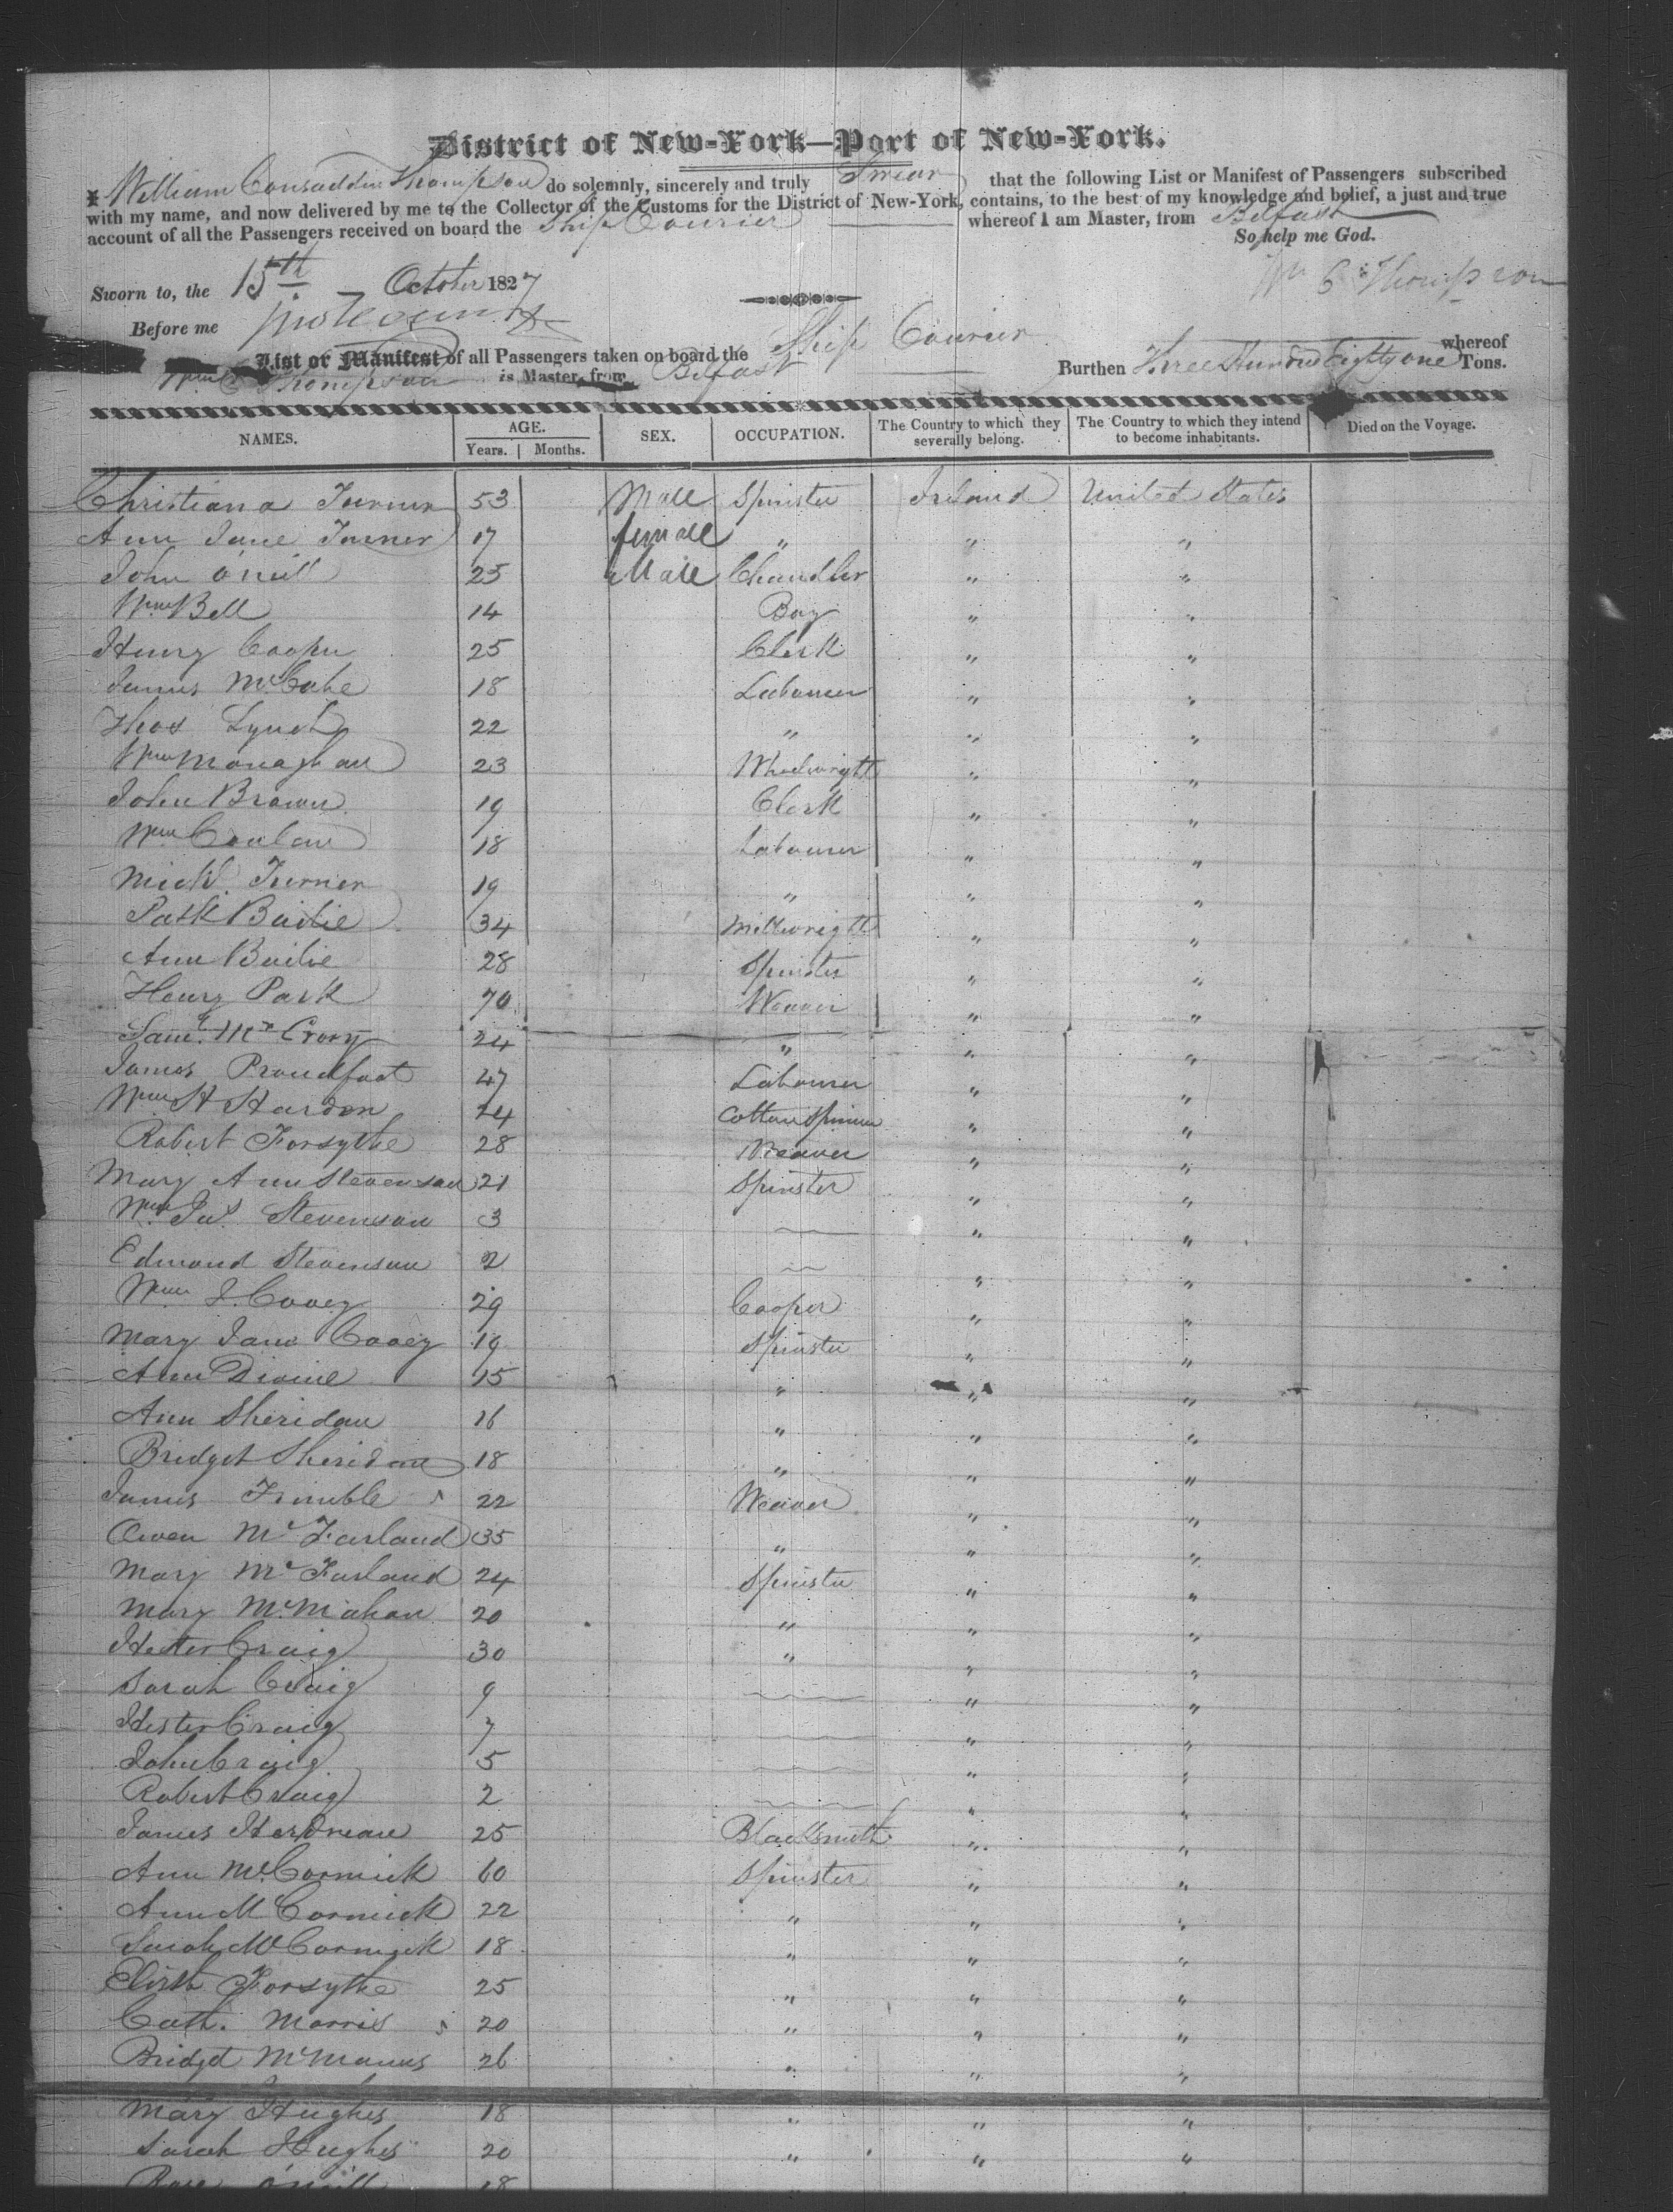 District of New-York—Port of New-York.
I William Consadden Thompson do solemnly, sincerely and truly Swear that the following List or Manifest of Passengers subscribed
with my name, and now delivered by me to the Collector of the Customs for the District of New-York, contains, to the best of my knowledge and belief, a just and true
account of all the Passengers received on board the Ship Courier whereof I am Master, from Belfast
So help me God.
Wm C Thompson
Sworn to, the 15th October 1827
Before me
List or Manifest of all Passengers taken on board the Ship Courier whereof
Wm C Thompson is Master, from Belfast Burthen Three Hundred Eighty one Tons.
NAMES. AGE. Years. Months. SEX. OCCUPATION. The Country to which they severally belong. The Country to which they intend to become inhabitants. Died on the Voyage.
Christiana Turner 53 Male Spinster Ireland United States
Ann Jane Turner 17 female " " "
John O'neill 25 Male Chandler " "
Wm Bell 14 Boy " "
Henry Cooper 25 Clerk " "
James McCabe 18 Labourer " "
Thos Lynch 22 " " "
Wm Monaghan 23 Wheelwright " "
John Brown 19 Clerk " "
Wm Conlan 18 Labourer " "
Michl. Turner 19 " " "
Patk Bailie 34 Millwright " "
Ann Bailie 28 Spinster " "
Henry Park 70 Weaver " "
Saml. McCrory 24 " " "
James Proudfoot 47 Labourer " "
Wm H Hardon 24 Cotton Spinner " "
Robert Forsythe 28 Weaver " "
Mary Ann Stevenson 21 Spinster " "
Wm Jas. Stevenson 3 — " "
Edmond Stevenson 2 — " "
Wm J. Cooey 29 Cooper " "
Mary Jane Cooey 19 Spinster " "
Ann Divine 15 " " "
Ann Sheridan 16 " " "
Bridget Sheridan 18 " " "
James Trimble 22 Weaver " "
Owen McFarland 35 " " "
Mary McFarland 24 Spinster " "
Mary McMahan 20 " " "
Hester Craig 30 " " "
Sarah Craig 9 — " "
Hester Craig 7 — " "
John Craig 5 — " "
Robert Craig 2 — " "
James Herdman 25 Blacksmith " "
Ann McCormick 60 Spinster " "
Ann McCormick 22 " " "
Sarah McCormick 18 " " "
Elizth Forsythe 25 " " "
Cath. Morris 20 " " "
Bridget McManus 26 " " "
Mary Hughes 18 " " "
Sarah Hughes 20 " " "
Rose O'neill 18